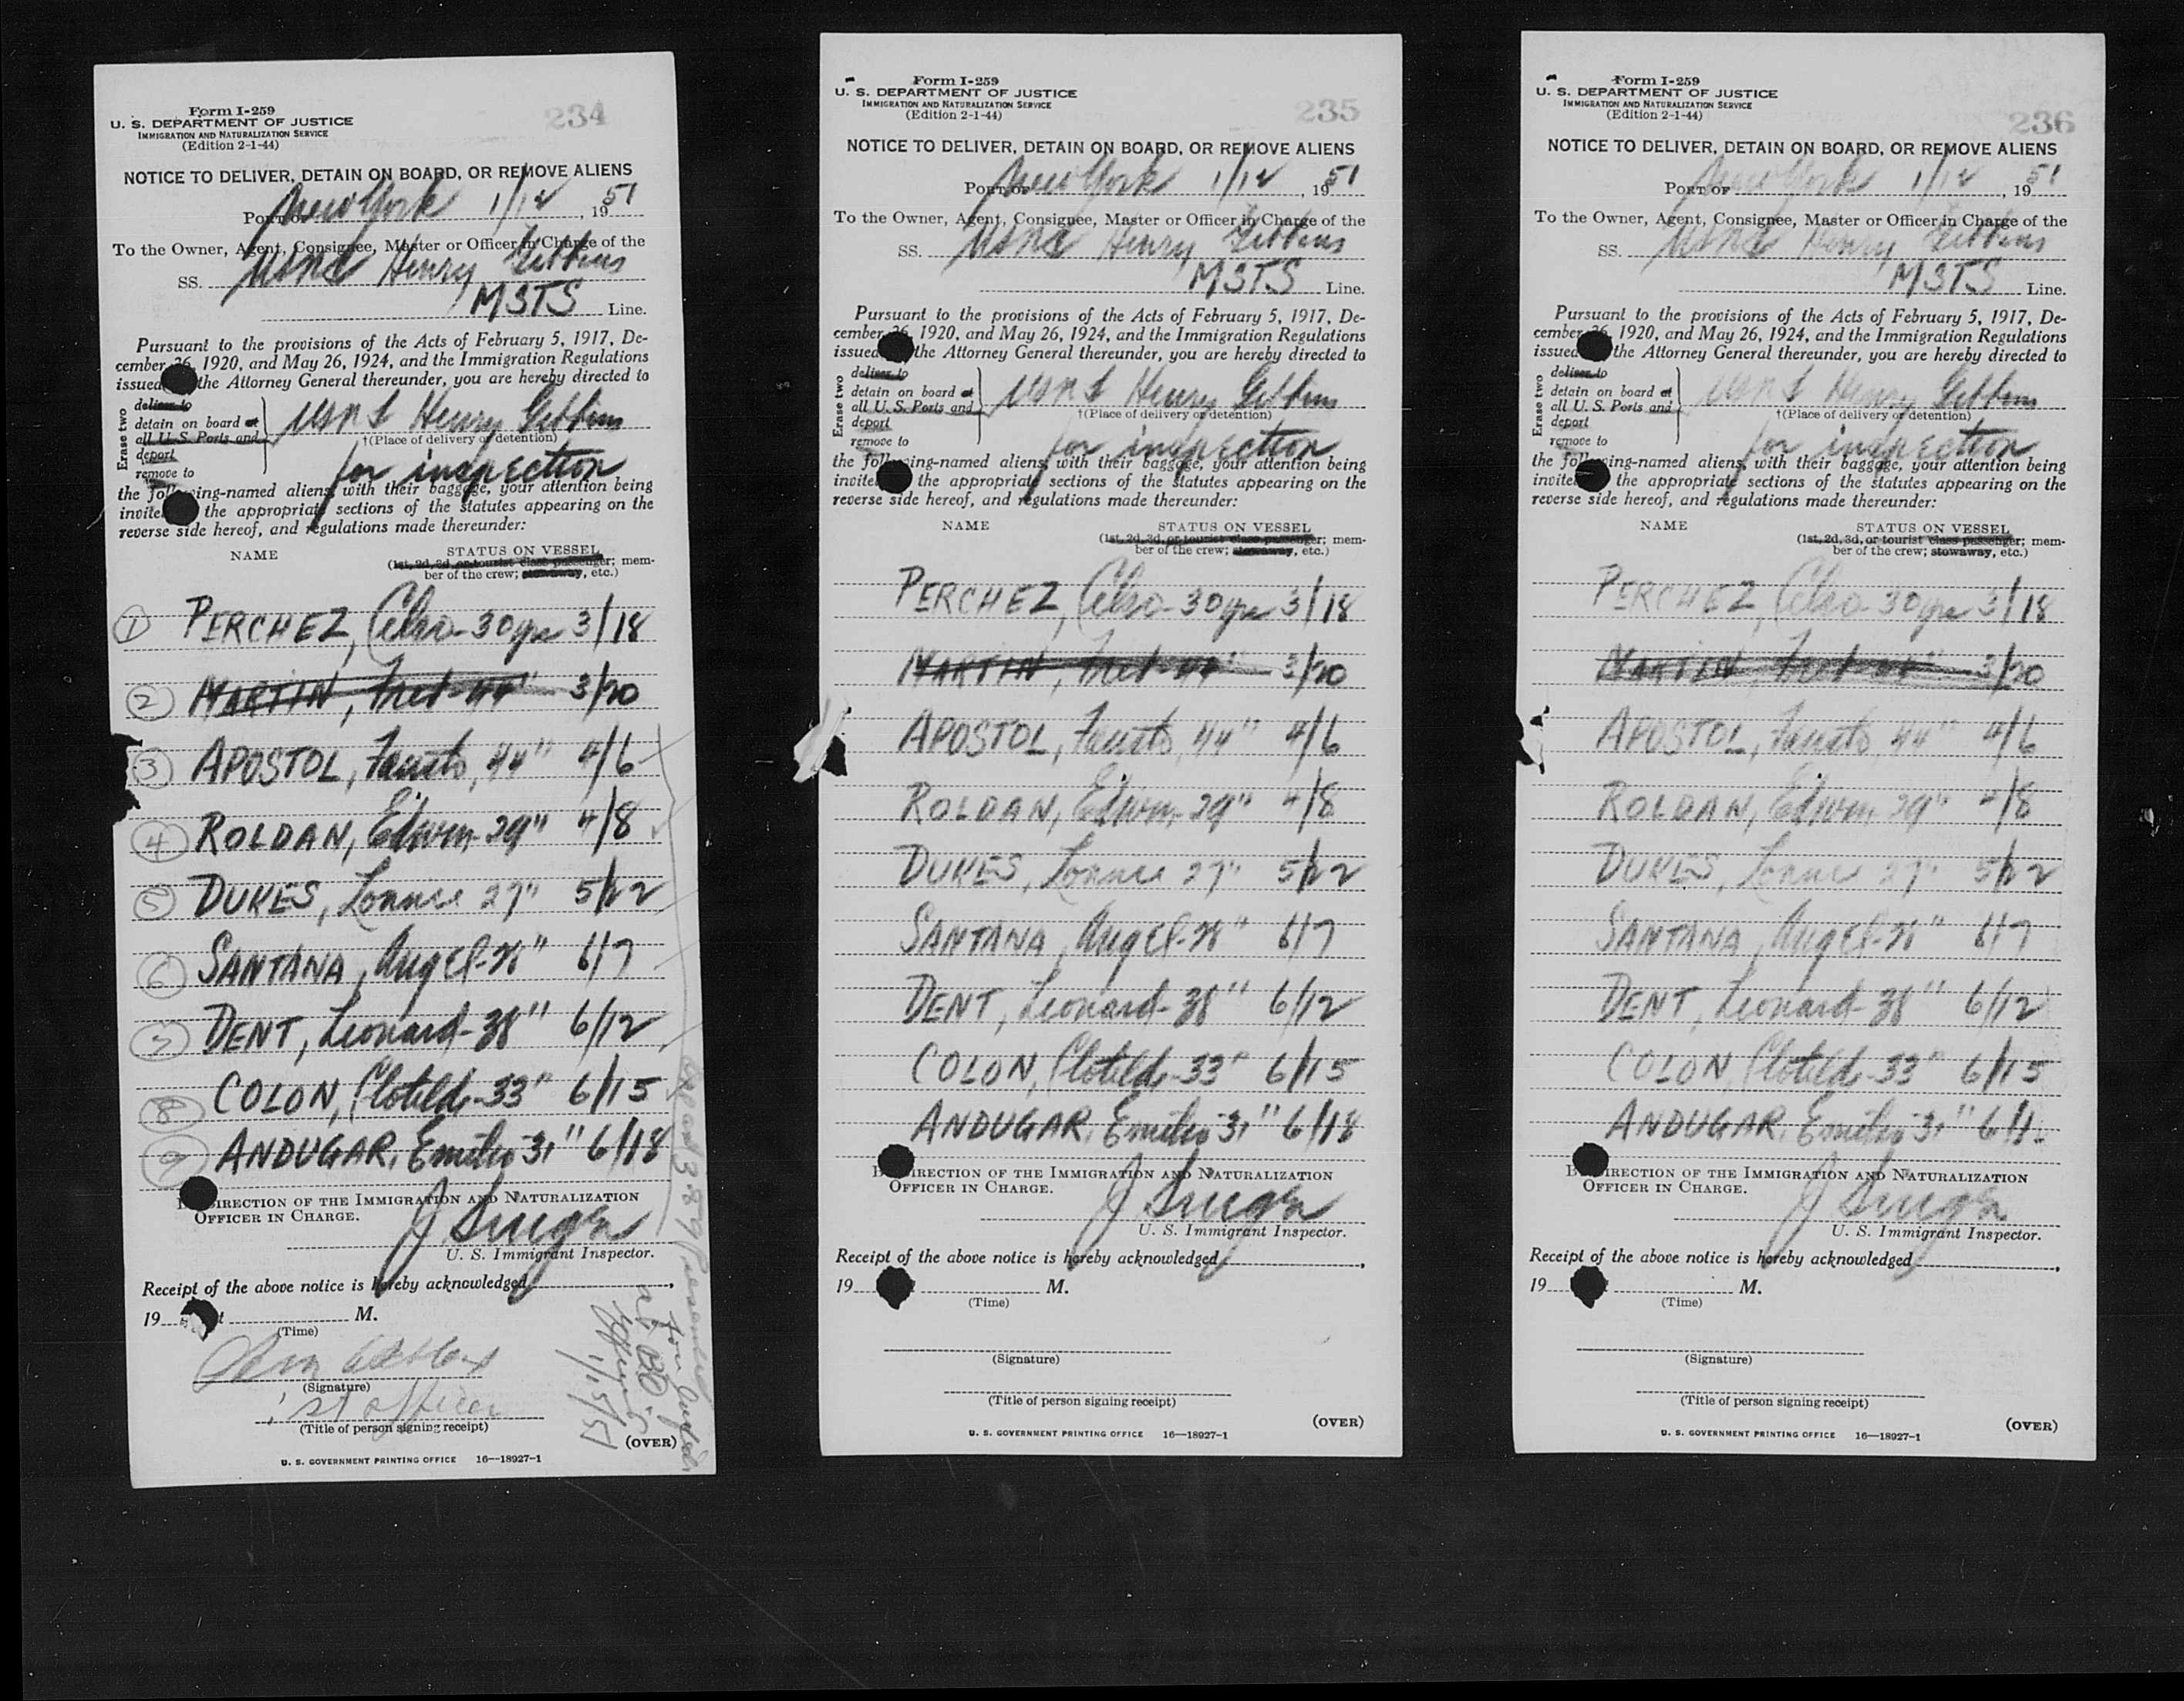 Form I-259
U. S. DEPARTMENT OF JUSTICE
IMMIGRATION AND NATURALIZATION SERVICE
(Edition 2-1-44)
234
NOTICE TO DELIVER, DETAIN ON BOARD, OR REMOVE ALIENS
Port of New York 1/12, 1951
To the Owner, Agent, Consignee, Master or Officer in Charge of the
SS. USNS Henry Gibbins
MSTS Line.
Pursuant to the provisions of the Acts of February 5, 1917, De-
cember 26, 1920, and May 26, 1924, and the Immigration Regulations
issued the Attorney General thereunder, you are hereby directed to
Erase two
deliver to
detain on board at
all U. S. Ports and
deport
remove to
USNS Henry Gibbins
†(Place of delivery or detention)
for inspection
the following-named aliens, with their baggage, your attention being
invited the appropriate sections of the statutes appearing on the
reverse side hereof, and regulations made thereunder:
NAME STATUS ON VESSEL
(1st, 2d, 3d, or tourist class passenger; mem-
ber of the crew; stowaway, etc.)
1 PERCHEZ, Celso-30 yrs 3/18
2 MARTIN, Fred-44" 3/20
3 APOSTOL, Fausto, 44" 4/6
4 ROLDAN, Edwin-29" 4/8
5 DUKES, Lonnie 27" 5/22
6 SANTANA, Angel- " 6/7
DENT, Leonard-38" 6/12
8 COLON, Clotilde-33" 6/15
9 ANDUGAR, Emilio 31" 6/18
DIRECTION OF THE IMMIGRATION AND NATURALIZATION
OFFICER IN CHARGE.
U. S. Immigrant Inspector.
Receipt of the above notice is hereby acknowledged,
19 M.
(Time)
(Signature)
1st officer
(Title of person signing receipt)
(OVER)
U. S. GOVERNMENT PRINTING OFFICE 16—18927-1
1/15/51
Form I-259
U. S. DEPARTMENT OF JUSTICE
IMMIGRATION AND NATURALIZATION SERVICE
(Edition 2-1-44)
235
NOTICE TO DELIVER, DETAIN ON BOARD, OR REMOVE ALIENS
Port of New York 1/12, 1951
To the Owner, Agent, Consignee, Master or Officer in Charge of the
SS. USNS Henry Gibbins
MSTS Line.
Pursuant to the provisions of the Acts of February 5, 1917, De-
cember 26, 1920, and May 26, 1924, and the Immigration Regulations
issued the Attorney General thereunder, you are hereby directed to
Erase two
deliver to
detain on board at
all U. S. Ports and
deport
remove to
USNS Henry Gibbins
†(Place of delivery or detention)
for inspection
the following-named aliens, with their baggage, your attention being
invited the appropriate sections of the statutes appearing on the
reverse side hereof, and regulations made thereunder:
NAME STATUS ON VESSEL
(1st, 2d, 3d, or tourist class passenger; mem-
ber of the crew; stowaway, etc.)
PERCHEZ, Celso-30 yrs 3/18
MARTIN, Fred-44" 3/20
APOSTOL, Fausto, 44" 4/6
ROLDAN, Edwin-29" 4/8
DUKES, Lonnie 27" 5/22
SANTANA, Angel- " 6/7
DENT, Leonard-38" 6/12
COLON, Clotilde-33" 6/15
ANDUGAR, Emilio 31" 6/18
DIRECTION OF THE IMMIGRATION AND NATURALIZATION
OFFICER IN CHARGE.
U. S. Immigrant Inspector.
Receipt of the above notice is hereby acknowledged,
19 M.
(Time)
(Signature)
(Title of person signing receipt)
(OVER)
U. S. GOVERNMENT PRINTING OFFICE 16—18927-1
Form I-259
U. S. DEPARTMENT OF JUSTICE
IMMIGRATION AND NATURALIZATION SERVICE
(Edition 2-1-44)
236
NOTICE TO DELIVER, DETAIN ON BOARD, OR REMOVE ALIENS
Port of New York 1/12, 1951
To the Owner, Agent, Consignee, Master or Officer in Charge of the
SS. USNS Henry Gibbins
MSTS Line.
Pursuant to the provisions of the Acts of February 5, 1917, De-
cember 26, 1920, and May 26, 1924, and the Immigration Regulations
issued the Attorney General thereunder, you are hereby directed to
Erase two
deliver to
detain on board at
all U. S. Ports and
deport
remove to
USNS Henry Gibbins
†(Place of delivery or detention)
for inspection
the following-named aliens, with their baggage, your attention being
invited the appropriate sections of the statutes appearing on the
reverse side hereof, and regulations made thereunder:
NAME STATUS ON VESSEL
(1st, 2d, 3d, or tourist class passenger; mem-
ber of the crew; stowaway, etc.)
PERCHEZ, Celso 30 yrs 3/18
MARTIN, Fred-44" 3/20
APOSTOL, Fausto, 44" 4/6
ROLDAN, Edwin 29" 4/8
DUKES, Lonnie 27" 5/22
SANTANA, Angel- " 6/7
DENT, Leonard-38" 6/12
COLON, Clotilde-33" 6/15
ANDUGAR, Emilio 31" 6/1
DIRECTION OF THE IMMIGRATION AND NATURALIZATION
OFFICER IN CHARGE.
U. S. Immigrant Inspector.
Receipt of the above notice is hereby acknowledged,
19 M.
(Time)
(Signature)
(Title of person signing receipt)
(OVER)
U. S. GOVERNMENT PRINTING OFFICE 16—18927-1